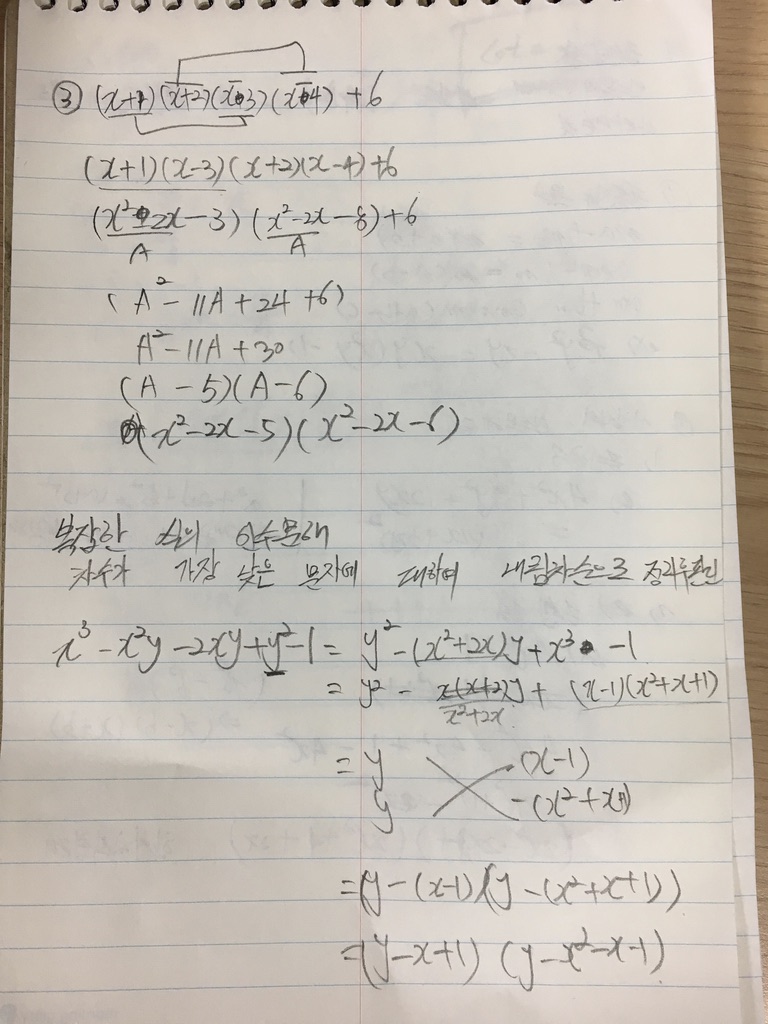 ③ (x+1)(x+2)(x-3)(x-4)+6
(x+1)(x-3)(x+2)(x-4)+6
(x²-2x-3)(x²-2x-8)+6
A A
(A²-11A+24+6)
A²-11A+30
(A-5)(A-6)
(x²-2x-5)(x²-2x-6)
복잡한 식의 인수분해
차수가 가장 낮은 문자에 대하여 내림차순으로
x³-x²y-2xy+y²-1 = y²-(x²+2x)y+x³-1
= y²-x(x+2)y+(x-1)(x²+x+1)
x²+2x
= y (x-1)
y -(x²+x+1)
=(y-(x-1)(y-(x²+x+1))
=(y-x+1)(y-x²-x-1)